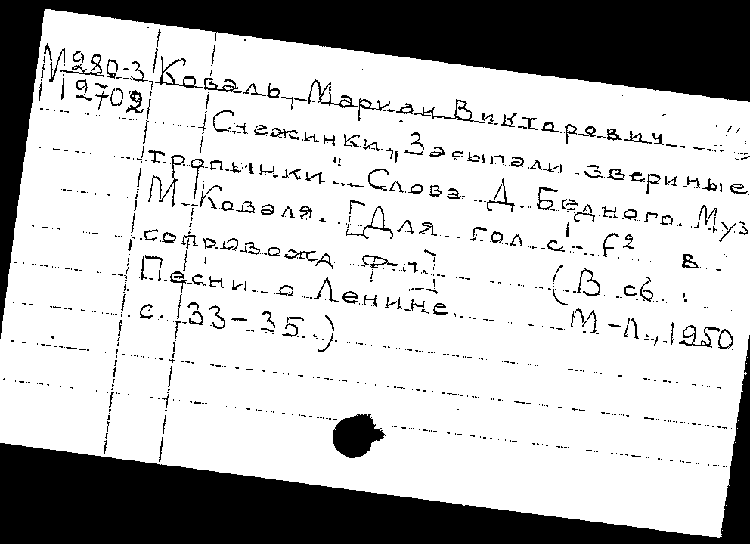 М 280-3
М 2702
Коваль, Мариан Викторович
Снежинки „Засыпали звериные
тропинки". Слова Д. Бедного. Муз
М. Коваля. [Для гол. c¹-f² в
сопровожд ф-п.] (В сб:
Песни о Ленине. М-Л., 1950
с. 33-35.)